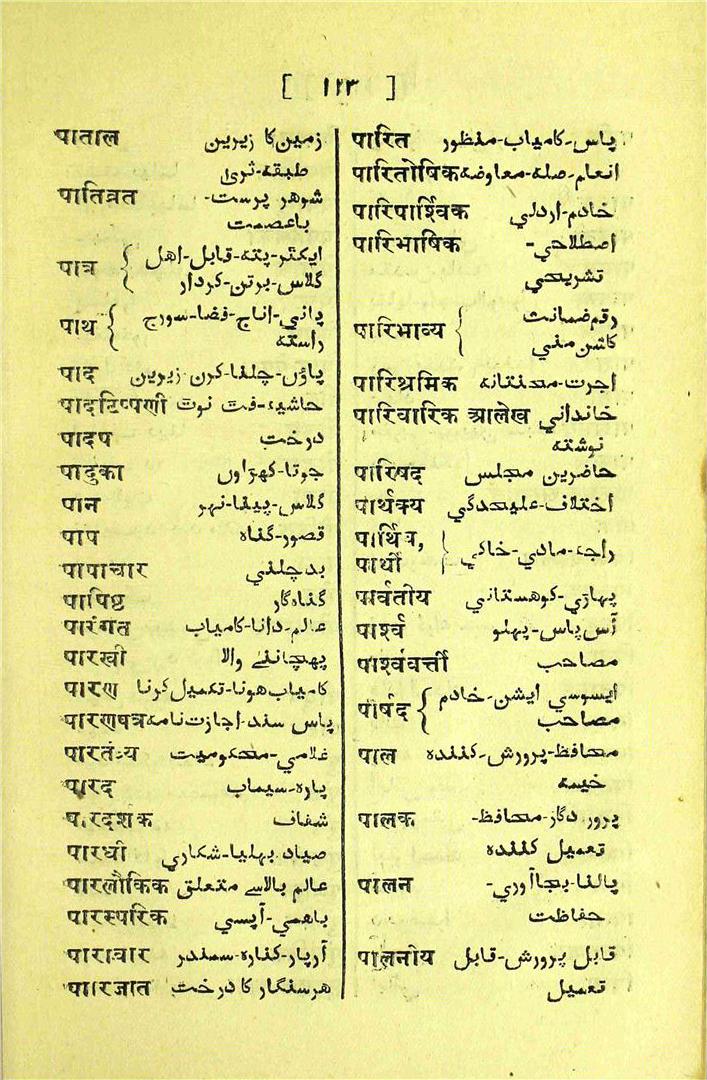 [ ۱۲۳ ]
पाताल زمین کا زیرین
طبقہ-ثریٰ
पातिव्रत شوہر پرست-
باعصمت
पात्र { ایکٹر-پتہ-قابل-اہل
گلاس-برتن-کردار
पाथ { پانی-اناج-فضا-سورج
راستہ
पाद پاؤں-چلنا-کرن-زیرین
पादटिप्पणी حاشیہ-فٹ نوٹ
पादप درخت
पादुका جوتا-کھڑاوں
पान گلاس-پینا-نہر
पाप قصور-گناہ
पापाचार بدچلنی
पापिष्ट گناہ گار
पारंगत عالم-دانا-کامیاب
पारखी پہچاننے والا
पारण کامیاب ہونا-تکمیل کرنا
पारणपत्र پاس سند-اجازت نامہ
पारतंत्र्य غلامی-محکومیت
पारद پارہ-سیماب
पारदर्शक شفاف
पारधी صیاد-بہلیا-شکاری
पारलौकिक عالم بالا سے متعلق
पारस्परिक باہمی-آپسی
पारावार آرپار-کنارہ-سمندر
पारिजात ہرسنگار کا درخت
पारित پاس-کامیاب-منظور
पारितोषिक انعام-صلہ-معاوضہ
पारिपार्श्विक خادم-اردلی
पारिभाषिक اصطلاحی-
تشریحی
पारिभाव्य { رقم ضمانت
کاشن منی
पारिश्रमिक اجرت-محنتانہ
पारिवारिक आलेख خاندانی
نوشتہ
पारिषद حاضرین مجلس
पार्थक्य اختلاف-علیحدگی
पार्थिव,
पार्थी } راجہ-مادی-خاکی
पार्वतीय پہاڑی-کوہستانی
पार्श्व آس پاس-پہلو
पार्श्ववर्त्ती مصاحب
पार्षद { ایسوسی ایشن-خادم
مصاحب
पाल محافظ-پرورش-کنندہ
خیمہ
पालक پرور دگار-محافظ-
تعمیل کنندہ
पालन پالنا-بجاآوری-
حفاظت
पालनीय قابل پرورش-قابل
تعمیل